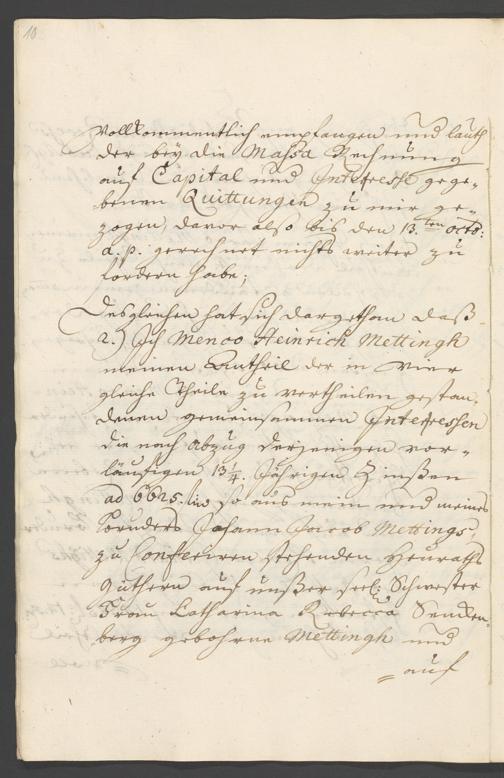 10
vollkommentlich empfangen und lauth
der bey die Massa Rechnung
auf Capital und Interesse gege-
benen Quittungen zu mir ge-
zogen, davor also bis den 13.ten Octb:
a. p. gerechnet nichts weiter zu
fordern habe;
Desgleichen hat sich dargethan daß
2.) Ich Menco Heinrich Mettingh
meinen Antheil der in vier
gleiche Theile zu vertheilen gestan-
denen gemeinsammen Interessen
die nach Abzug derjenigen vor-
läufigen 13 1/4. Jährigen Zinßen
ad 6625. so aus mein und meines
Bruders Johann Jacob Mettings,
zu Conferiren stehenden Heuraths
Güthern auf unßer seel. Schwester
Frau Catharina Rebecca Sencken-
berg gebohrne Mettingh und
= auf